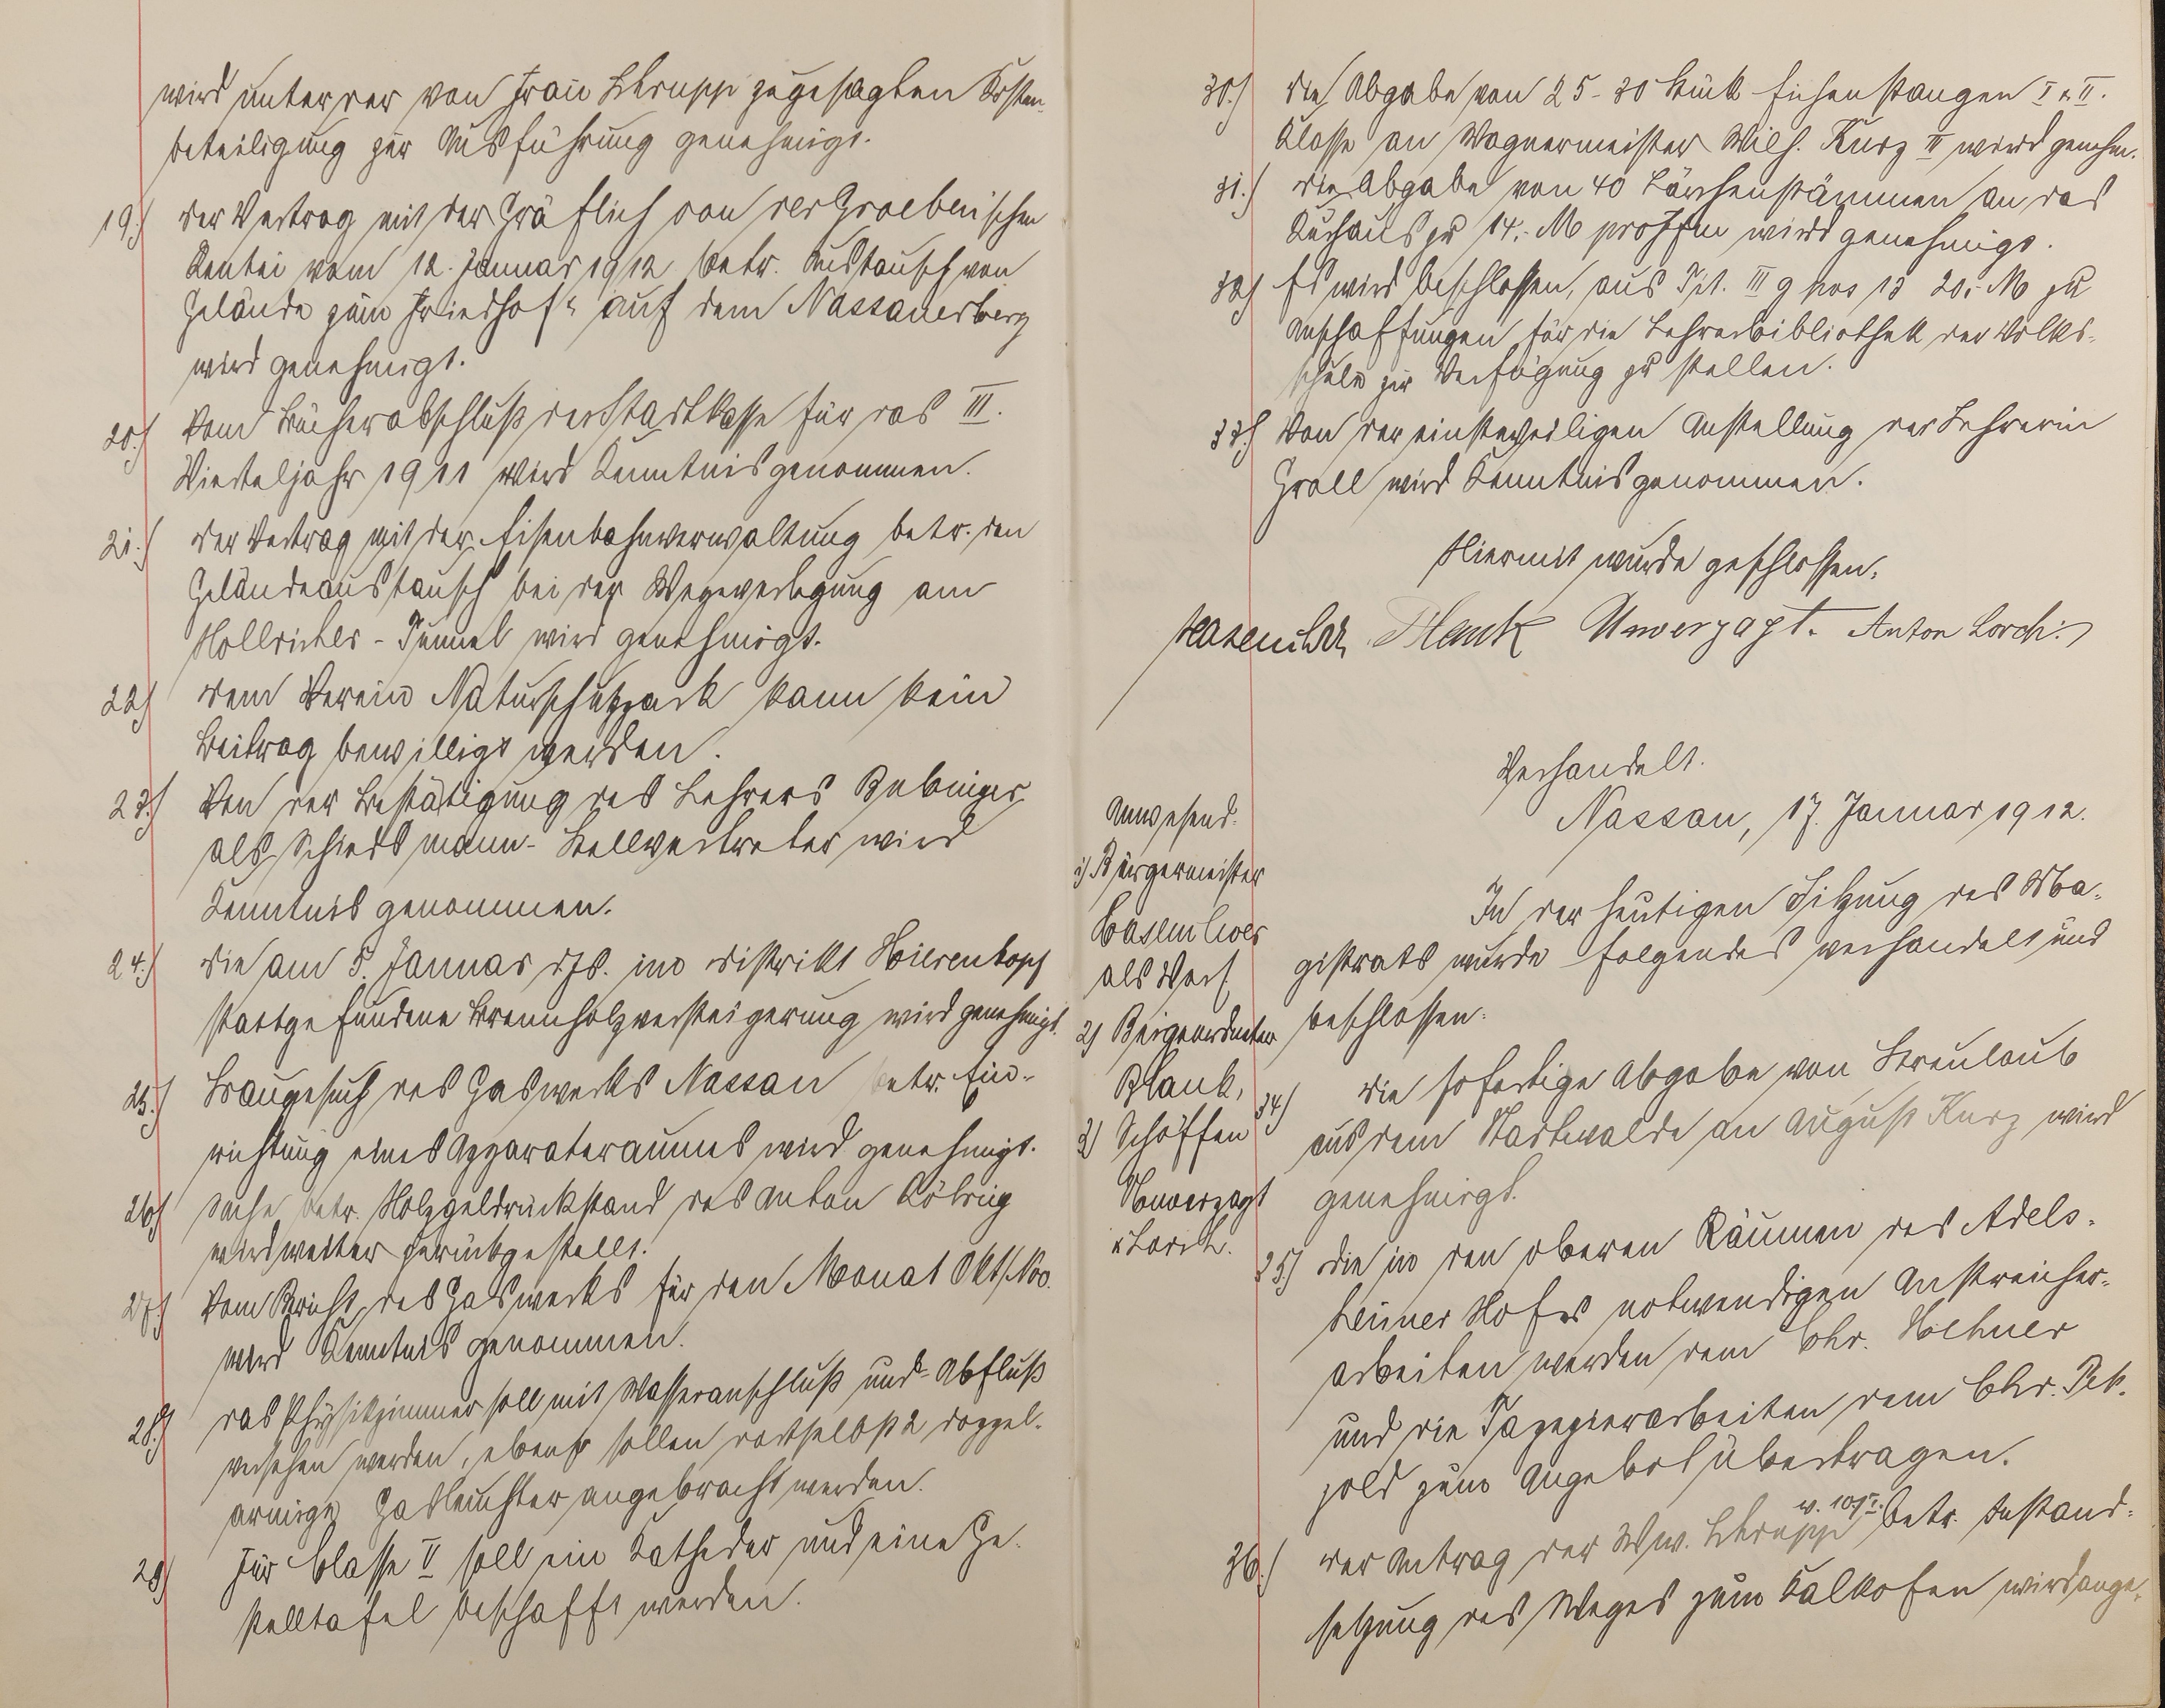 wird unter der von Frau Schrupp zugesagten Kosten-
beteiligung zur Ausführung genehmigt.
19.) Der Vertrag mit der Gräflich von der Groebenschen
Rentei vom 12. Januar 1912 betr. Austausch von
Gelände zum Friedhof auf dem Nassauerberg
wird genehmigt.
20.) Vom Bücherabschluß der Stadtkasse für das III.
Vierteljahr 1911 wird Kenntnis genommen.
21.) Der Vertrag mit der Eisenbahnverwaltung betr. den
Geländeaustausch bei der Wegeverlegung am
Hollrichter-Tunnel wird genehmigt.
22) Dem Verein Naturschutzpark kann kein
Beitrag bewilligt werden.
23.) Von der Bestätigung des Lehrers Bubinger
als Schiedsmann-Stellvertreter wird
Kenntnis genommen.
24.) Die am 5. Januar djs. im Distrikt Hierenkopf
stattgefundene Brennholzversteigerung wird genehmigt.
25.) Baugesuch des Gaswerks Nassau betr. Ein-
richtung eines Apparateraumes wird genehmigt.
26) Sache betr. Holzgeldrückstand des Anton Röhrig
wird weiter zurückgestellt.
27.) Vom Bericht des Gaswerks für den Monat Okt/Nov.
wird Kenntnis genommen.
28.) Das Physikzimmer soll mit Wasseranschluß und -Abfluß
versehen werden, ebenso sollen dortselbst 2 doppel-
armige Gasleuchter angebracht werden.
29) Für Classe II soll ein Katheder und eine Ge-
stelltafel beschafft werden.
30.) Die Abgabe von 25-30 Stück Eichenstangen I u. II.
Classe an Wagnermeister Wilh. Kurz II wird genehm.
31.) Die Abgabe von 40 Lärchenstämmen an das
Kurhaus zu 14,- M pro Fm wird genehmigt.
32) Es wird beschlossen, aus Tit. III g pos 13 20,- M zu
Anschaffungen für die Lehrerbibliothek der Volks-
schule zur Verfügung zu stellen.
33.) Von der einstweiligen Anstellung der Lehrerin
Groll wird Kenntnis genommen.
Hiermit wurde geschlossen.
Hasenclever Blank Unverzagt. Anton Lorch.
Verhandelt.
Nassau, 17. Januar 1912.
Anwesend:
1) Bürgermeister
Hasenclever
als Vors.
2) Beigeordneter
Blank,
3) Schöffen
Unverzagt
u Lorch.
In der heutigen Sitzung des Ma-
gistrats wurde folgendes verhandelt und
beschlossen:
34) Die sofortige Abgabe von Streulaub
aus dem Stadtwalde an August Kurz wird
genehmigt.
35.) Die in den oberen Räumen des Adels-
heimer Hofes notwendigen Anstreicher-
arbeiten werden dem Chr. Hehner
und die Tapezierarbeiten dem Chr. Pet-
zold zum Angebot übertragen.
36.) Der Antrag der Ww. Schrupp v. 10/I. betr. Instand-
setzung des Weges zum Kalkofen wird ange-